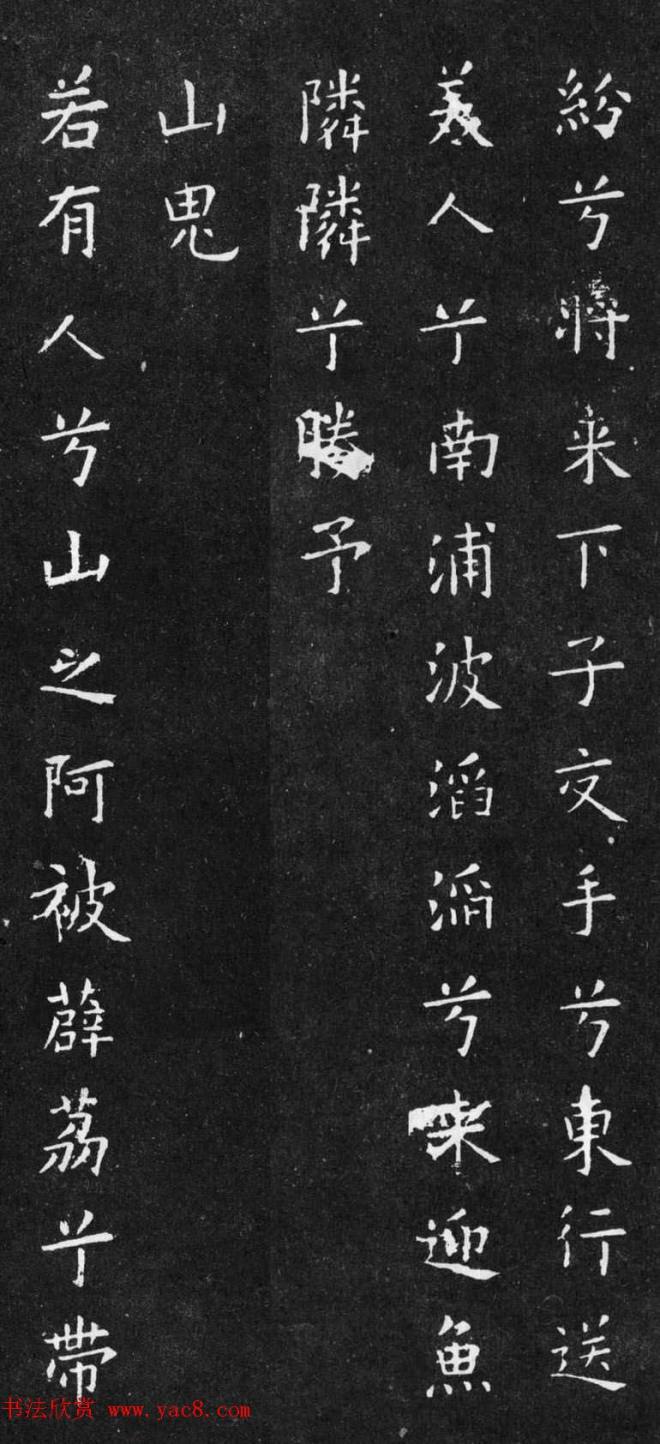 紛兮將来下子交手兮東行送
美人兮南浦波滔滔兮来迎魚
隣隣兮媵予
山鬼
若有人兮山之阿被薜荔兮帶
书法欣赏 www.yac8.com